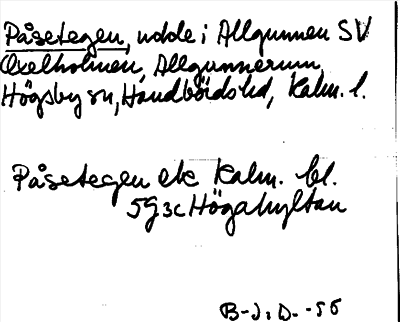 Påsetegen, udde i Allgunnen SV
Oxelholmen, Allgunnerum,
Högsby sn, Handbörds hd, Kalm. l.
Påsetegen ek Kalm. bl.
5G3c Högahyltan
B-J. D. -56